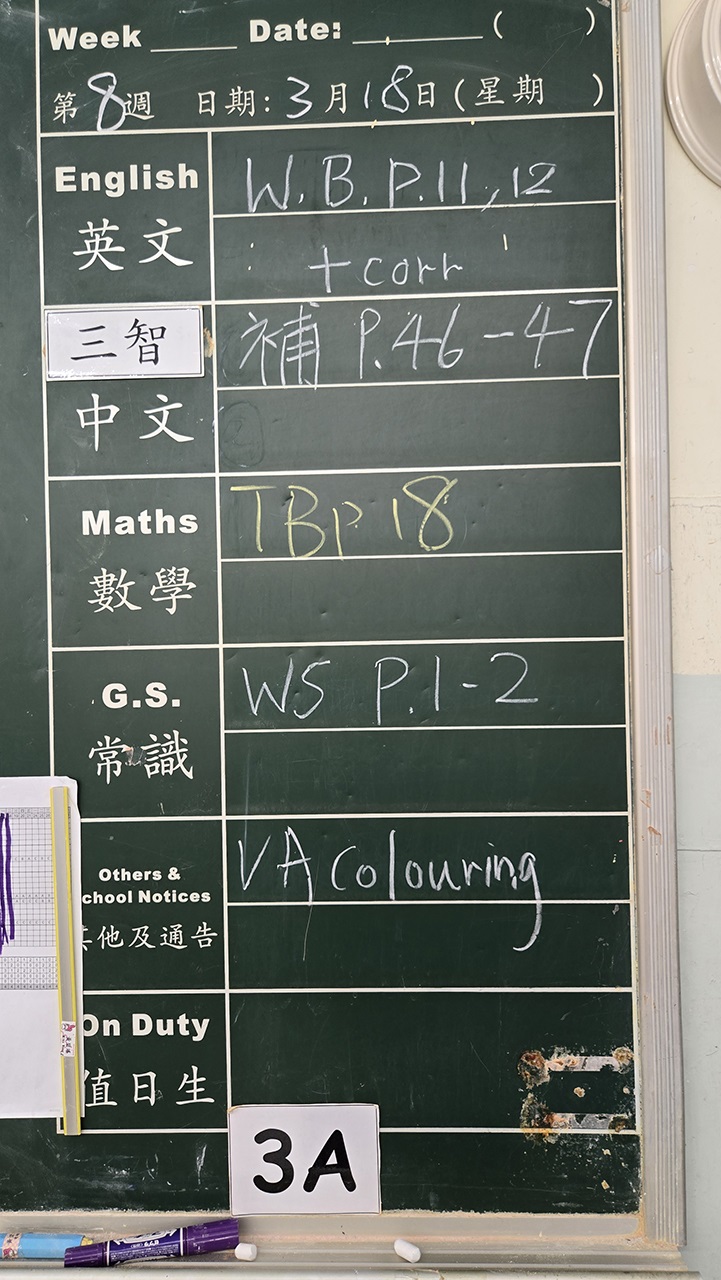 Week _____ Date: _______ ( )
第8週 日期: 3月18日(星期 )
English W.B. P.11, 12
英文 + corr
三智 補 P.46-47
中文
Maths TBp 18
數學
G.S. WS P.1-2
常識
Others & VA Colouring
chool Notices
其他及通告
On Duty
值日生
3A